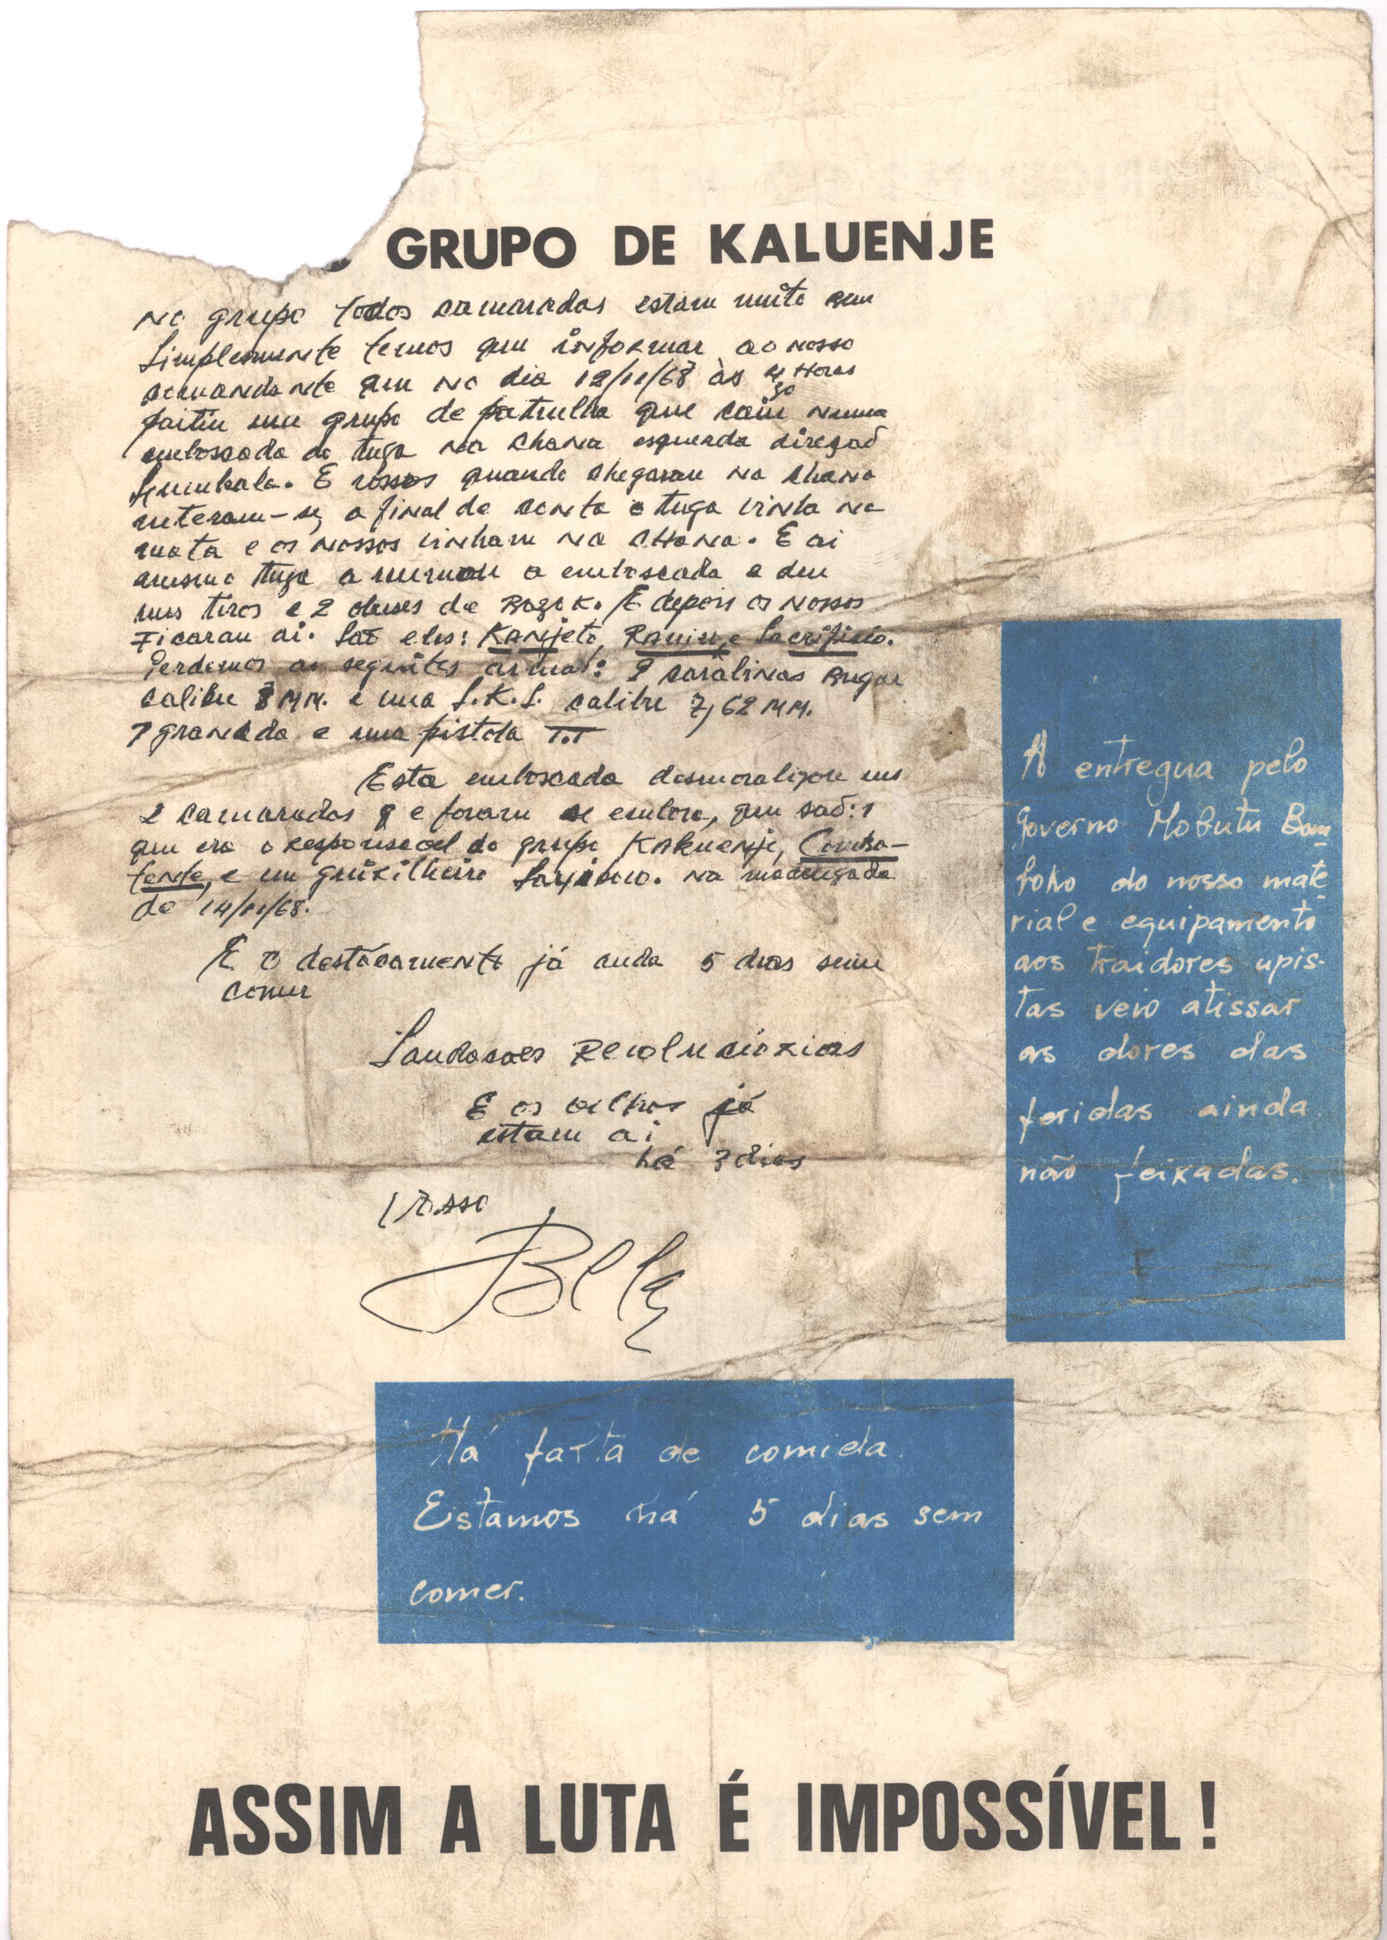 GRUPO DE KALUENJE
No grupo todos camaradas estam muito
Simplesmente temos que informar ao nosso
comandante que no dia 12/11/68 às 4 Horas
30
partiu um grupo de patrulha que caiu numa
emboscada do tuga na chana esquerda direção
E nossos quando chegaram na chana
meteram-se, a final de conta o tuga vinha na
mata e os nossos vinham na chana. E ai
mesmo tuga a emboscada e deu
uns tiros e 2 obuses de Bazok. E depois os nossos
Ficaram ai. São eles: Kanjeto, e Sacrificio.
Perdemos as seguintes armas: 2 carabinas
calibre MM. e uma S.K.S. calibre 7,62 MM.
granada e uma pistola T.T
Esta emboscada desmoralizou uns
2 camaradas q e foram se embora, que saõ: 1
que era o responsavel do grupo
e um
de 14/11/68.
E o destacamento já anda 5 dias sem
comer
Saudacoes Revolucionárias
E os velhos já
estam ai
há 3 dias
Vosso
A entregua pelo
Governo Mobutu Bom
boko do nosso mate-
rial e equipamento
aos traidores upis-
tas veio atissar
as dores das
feridas ainda
não feixadas.
Há farta de comida.
Estamos há 5 dias sem
comer.
ASSIM A LUTA É IMPOSSÍVEL!